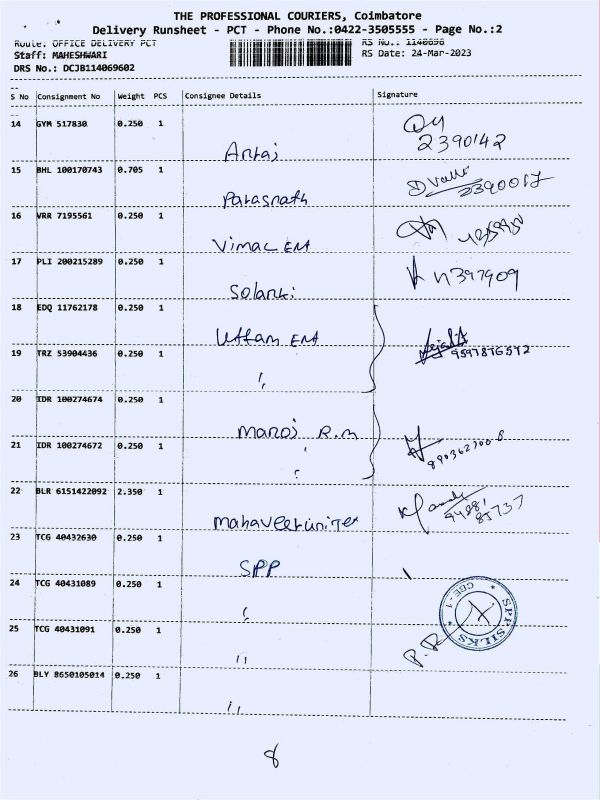 THE PROFESSIONAL COURIERS, Coimbatore
Delivery Runsheet - PCT - Phone No.:0422-3505555 - Page No.:2
Route: OFFICE DELIVERY PCT RS No.: 1140696
Staff: MAHESHWARI RS Date: 24-Mar-2023
DRS No.: DCJB114069602
S No Consignment No Weight PCS Consignee Details Signature
14 GYM 517830 0.250 1
2390142
15 BHL 100170743 0.705 1
Parasnath 2390017
16 VRR 7195561 0.250 1
Vimal Ent
17 PLI 200215289 0.250 1
Solanki
18 EDQ 11762178 0.250 1
Uttam Ent
19 TRZ 53904436 0.250 1
9597876572
20 IDR 100274674 0.250 1
Manoj R.M
21 IDR 100274672 0.250 1
22 BLR 6151422092 2.350 1
Mahaveer Unitex
23 TCG 40432630 0.250 1
SPP
24 TCG 40431089 0.250 1
SPP SILKS * CBE - 1 *
25 TCG 40431091 0.250 1
"
26 BLY 8650105014 0.250 1
"
8